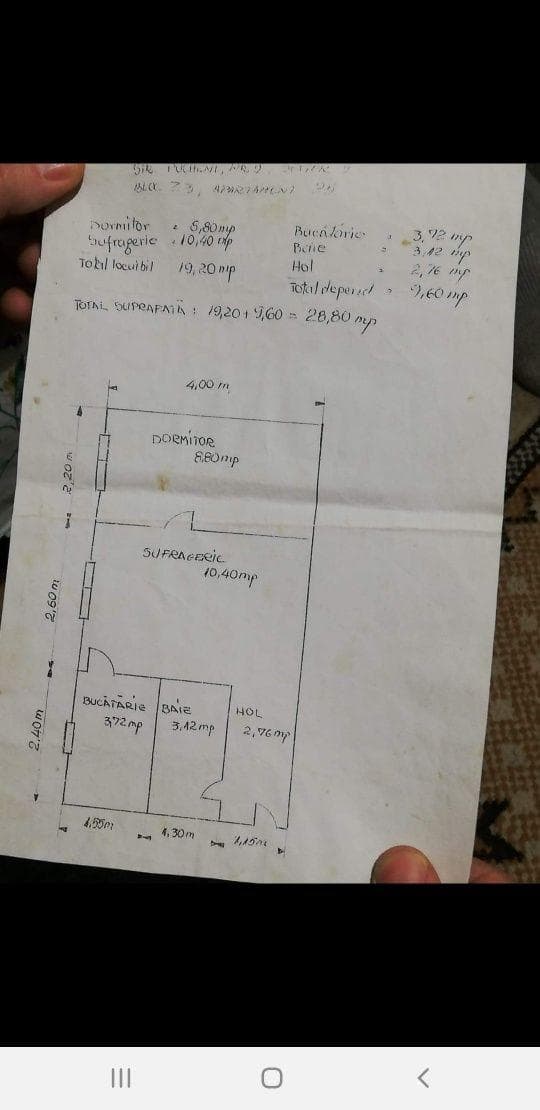 BLOC 33, APARTAMENT
Dormitor = 8,80mp
Sufragerie = 10,40 mp
Total locuibil 19,20 mp
Bucătărie = 3,72 mp
Baie = 3,12 mp
Hol = 2,76 mp
Total depend = 9,60 mp
TOTAL SUPRAFAȚĂ : 19,20 + 9,60 = 28,80 mp
4,00 m
DORMITOR
8,80mp
2,20 m
SUFRAGERIE
10,40mp
2,60m
BUCĂTĂRIE
3,72mp
BAIE
3,12mp
HOL
2,76mp
2,40m
1,55m
1,30m
1,15m